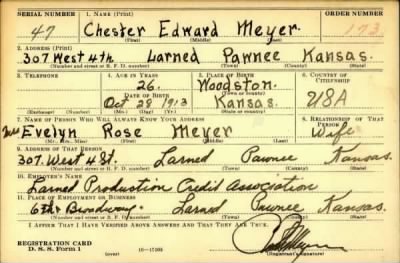 SERIAL NUMBER 1. NAME (Print) ORDER NUMBER
47 Chester Edward Meyer 173
(First) (Middle) (Last)
2. ADDRESS (Print)
307 West 4th Larned Pawnee Kansas.
(Number and street or R. F. D. number) (Town) (County) (State)
3. TELEPHONE 4. AGE IN YEARS 5. PLACE OF BIRTH 6. COUNTRY OF CITIZENSHIP
26. Woodston.
DATE OF BIRTH (Town or county)
Oct 28 1913 Kansas. USA
(Exchange) (Number) (Mo.) (Day) (Yr.) (State or country)
7. NAME OF PERSON WHO WILL ALWAYS KNOW YOUR ADDRESS 8. RELATIONSHIP OF THAT PERSON
Mrs Evelyn Rose Meyer Wife
(Mr., Mrs., Miss) (First) (Middle) (Last)
9. ADDRESS OF THAT PERSON
307. West 4 St. Larned Pawnee Kansas.
(Number and street or R. F. D. number) (Town) (County) (State)
10. EMPLOYER'S NAME
Larned Production Credit Association
11. PLACE OF EMPLOYMENT OR BUSINESS
6th Broadway. Larned Pawnee Kansas.
(Number and street or R. F. D. number) (Town) (County) (State)
I AFFIRM THAT I HAVE VERIFIED ABOVE ANSWERS AND THAT THEY ARE TRUE.
REGISTRATION CARD
D. S. S. Form 1 (over) (Registrant's signature)